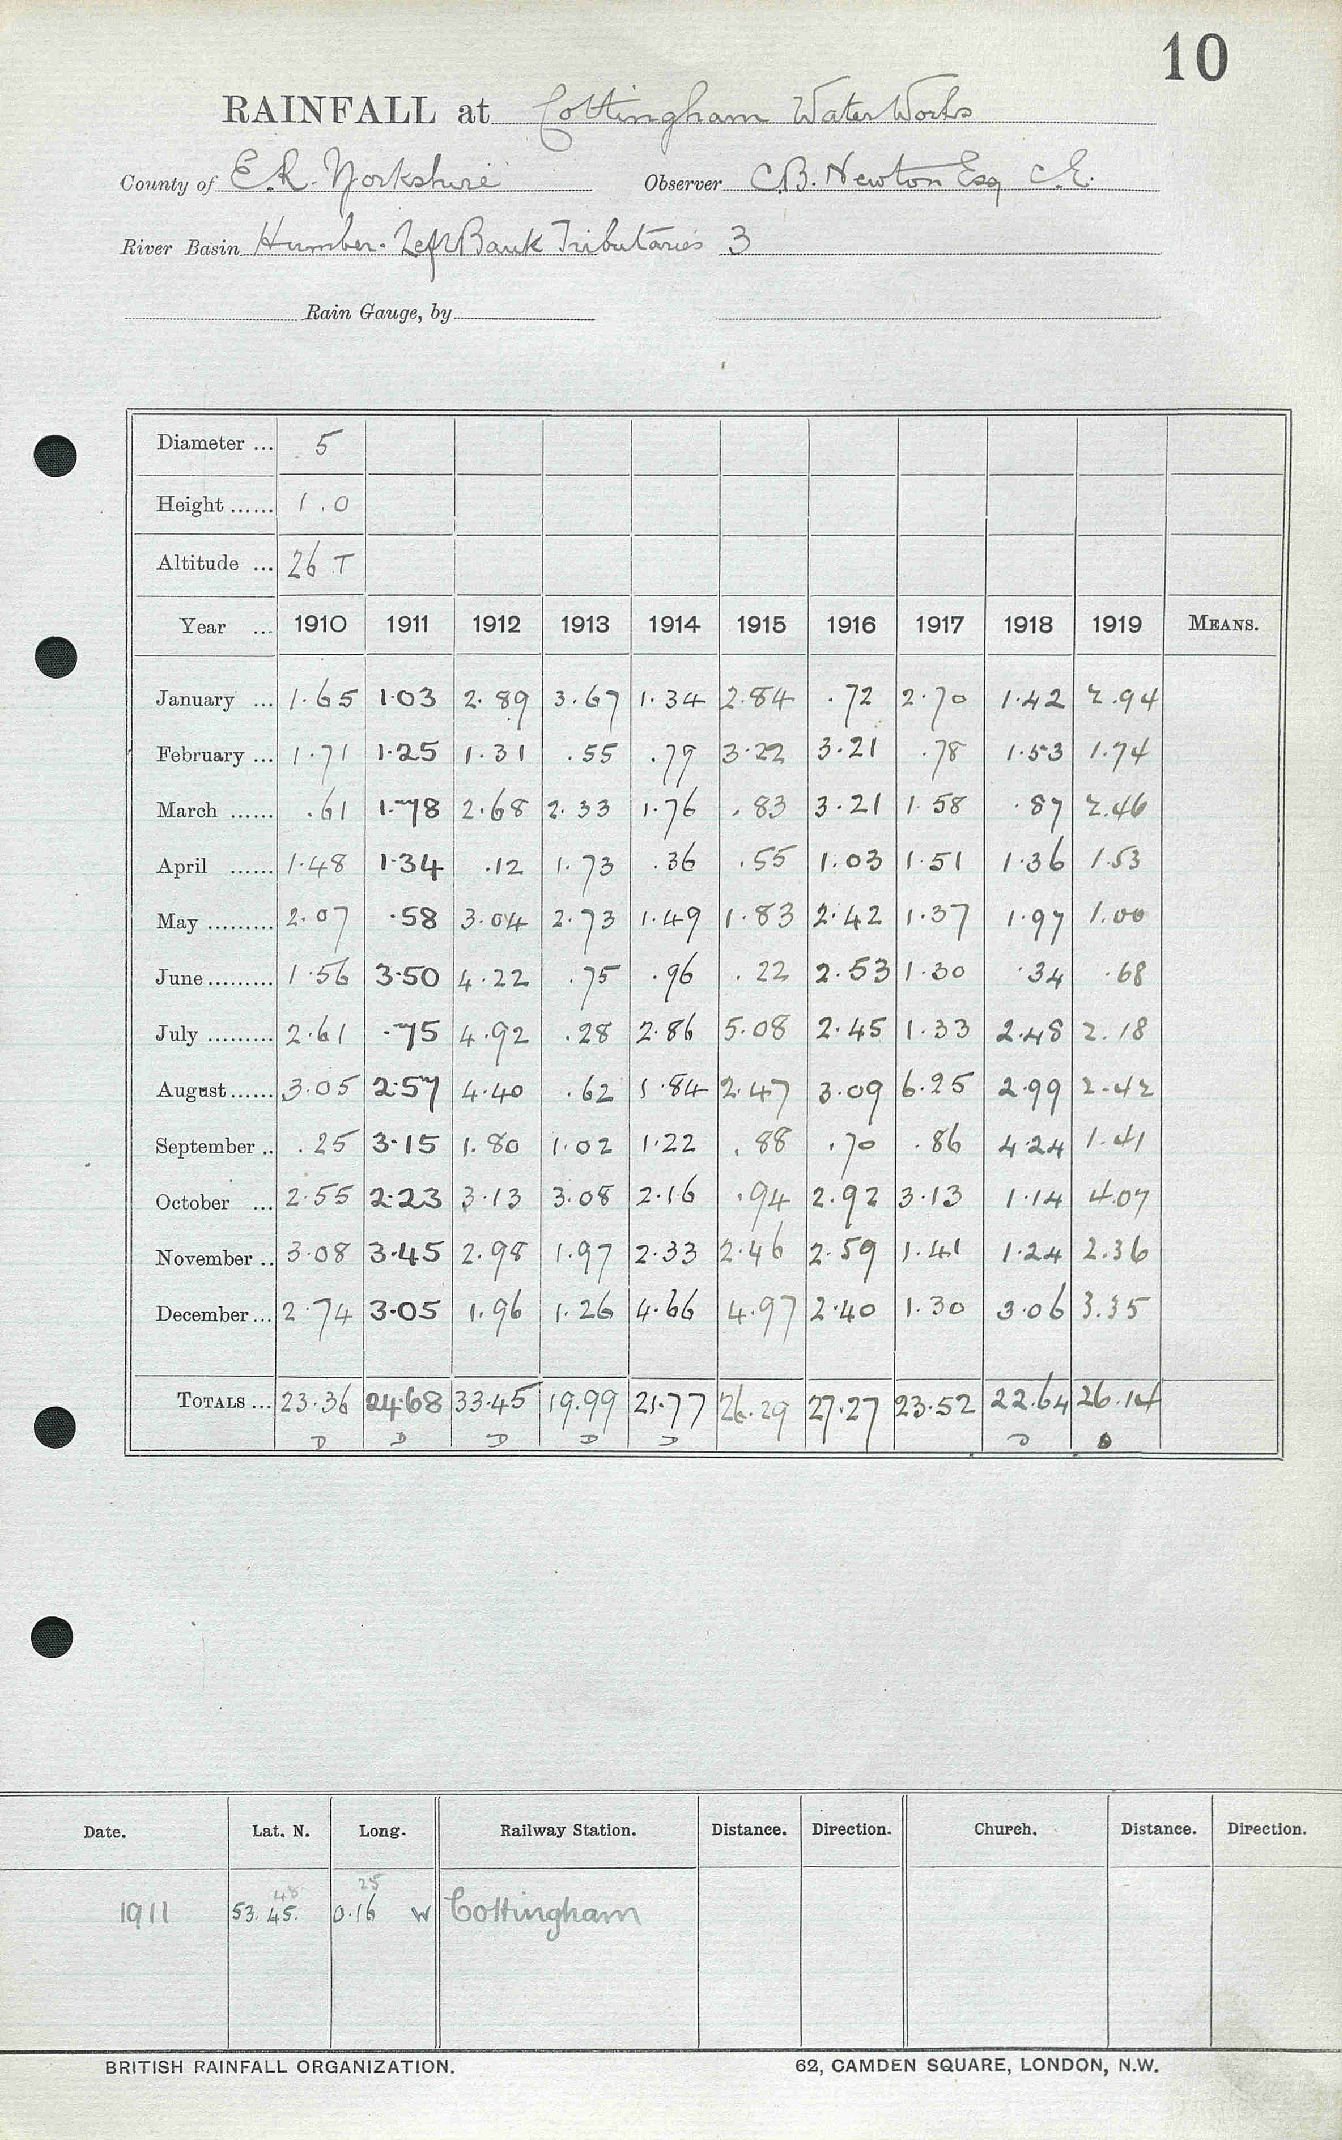 10
RAINFALL at Cottingham Water Works
County of E.R. Yorkshire Observer C.B. Newton Esq C.E.
River Basin Humber. Left Bank Tributaries 3
Rain Gauge, by
Diameter ... 5
Height ...... 1.0
Altitude ... 26 T
Year ... 1910 1911 1912 1913 1914 1915 1916 1917 1918 1919 MEANS.
January ... 1.65 1.03 2.89 3.67 1.34 2.84 .72 2.70 1.42 2.94
February ... 1.71 1.25 1.31 .55 .79 3.22 3.21 .78 1.53 1.74
March ...... .61 1.78 2.68 2.33 1.76 .83 3.21 1.58 .87 2.46
April ...... 1.48 1.34 .12 1.73 .36 .55 1.03 1.51 1.36 1.53
May ......... 2.07 .58 3.04 2.73 1.49 1.83 2.42 1.37 1.97 1.00
June ......... 1.56 3.50 4.22 .75 .96 .22 2.53 1.30 .34 .68
July ......... 2.61 .75 4.92 .28 2.86 5.08 2.45 1.33 2.48 2.18
August ...... 3.05 2.57 4.40 .62 1.84 2.47 3.09 6.25 2.99 2.42
September .. .25 3.15 1.80 1.02 1.22 .88 .70 .86 4.24 1.41
October ... 2.55 2.23 3.13 3.08 2.16 .94 2.92 3.13 1.14 4.07
November .. 3.08 3.45 2.98 1.97 2.33 2.46 2.59 1.41 1.24 2.36
December ... 2.74 3.05 1.96 1.26 4.66 4.97 2.40 1.30 3.06 3.35
TOTALS ... 23.36 24.68 33.45 19.99 21.77 26.29 27.27 23.52 22.64 26.14
D D D D D D D
Date. Lat. N. Long. Railway Station. Distance. Direction. Church. Distance. Direction.
48 25
1911 53.45. 0.16 W Cottingham
BRITISH RAINFALL ORGANIZATION. 62, CAMDEN SQUARE, LONDON, N.W.